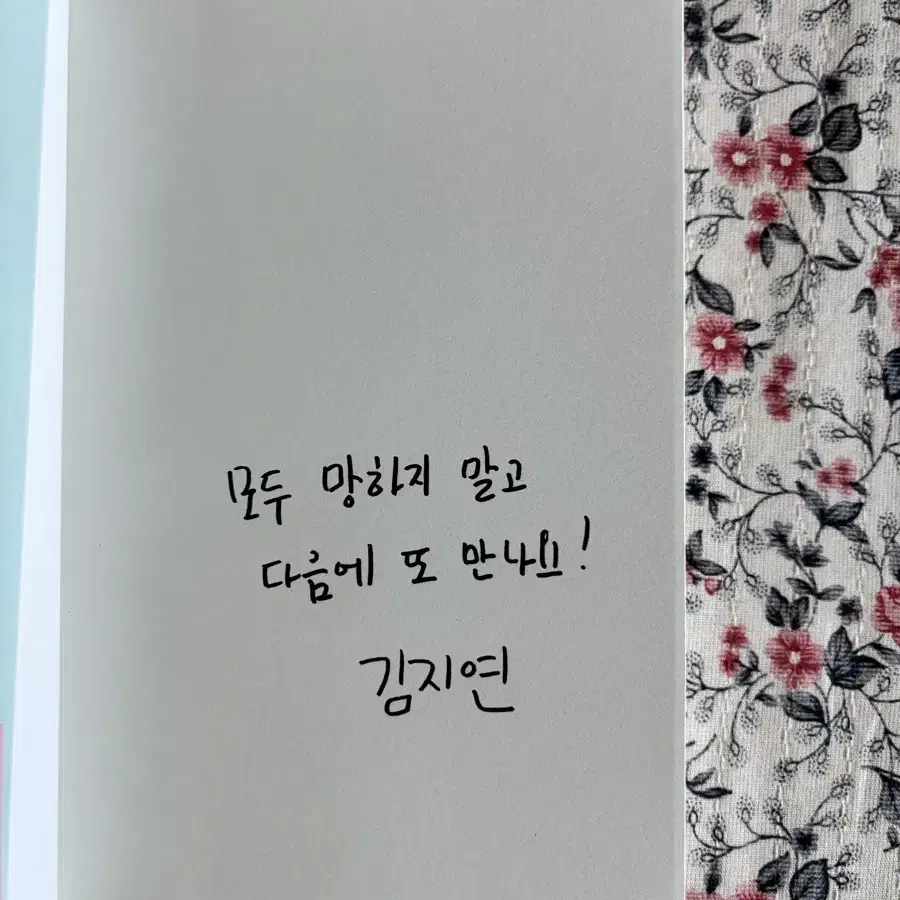 모두 망하지 말고
다음에 또 만나요!
김지연